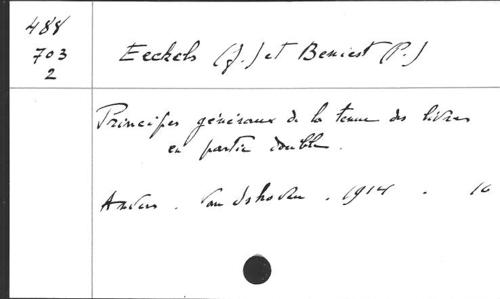 488
703
2
Eeckels (J.) et Beniest (P.)
Principes généraux de la tenue des livres
en partie double.
Anvers. Van Ishoven. 1914. 16